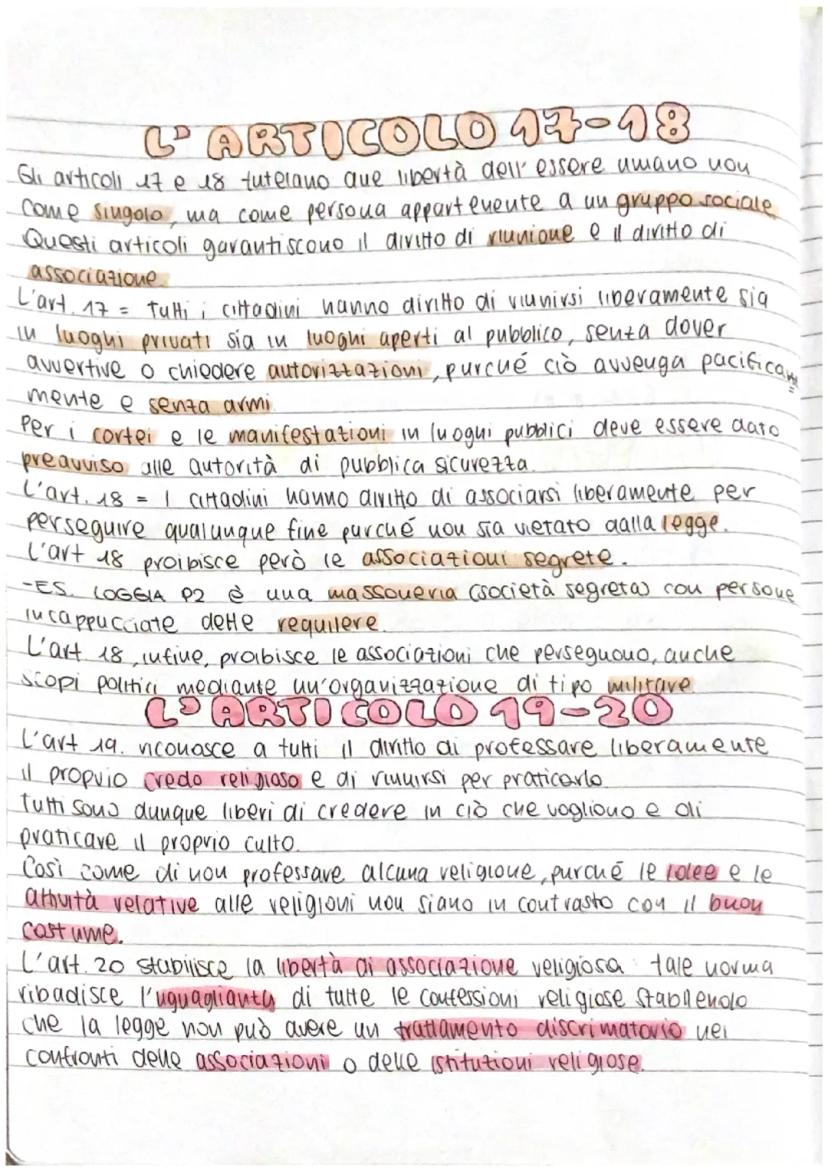 L'ARTICOLO 17-18
Gli articoli 17 e 18 tutelano due libertà dell'essere umano non
come singolo, ma come persona appartenente a un gruppo sociale
Questi articoli garantiscono il diritto di riunione e il diritto di
associazione.
L'art. 17 = Tutti i cittadini hanno diritto di riunirsi liberamente sia
in luoghi privati sia in luoghi aperti al pubblico, senza dover
avvertire o chiedere autorizzazioni, purché ciò avvenga pacifica
mente e senza armi.
Per i cortei e le manifestazioni in luoghi pubblici deve essere dato
preavviso alle autorità di pubblica sicurezza.
L'art. 18 = I cittadini hanno diritto di associarsi liberamente per
perseguire qualunque fine purché non sia vietato dalla legge.
L'art 18 proibisce però le associazioni segrete.
-ES. LOGGIA P2 è una massoneria (società segreta) con persone
incappucciate dette requilere.
L'art. 18, infine, proibisce le associazioni che perseguono, anche
scopi politici mediante un'organizzazione di tipo militare
L'ARTICOLO 19-20
L'art 19. riconosce a tutti il diritto di professare liberamente
il proprio credo religioso e di riunirsi per praticarlo.
Tutti sono dunque liberi di credere in ciò che vogliono e di
praticare il proprio culto.
Così come di non professare alcuna religione, purché le idee e le
attività relative alle religioni non siano in contrasto con il buon
costume.
L'art. 20 stabilisce la libertà di associazione religiosa: tale norma
ribadisce l'uguaglianza di tutte le confessioni religiose stabilendo
che la legge non può avere un trattamento discrimatorio nei
confronti delle associazioni o delle istituzioni religiose.